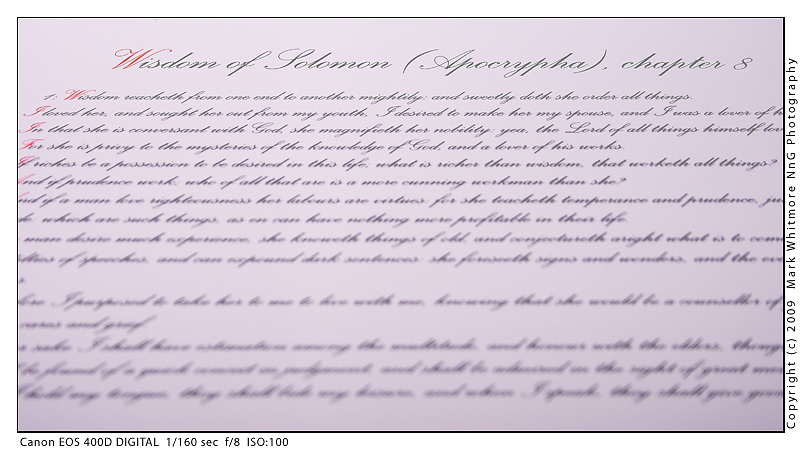 Wisdom of Solomon (Apocrypha), chapter 8
1: Wisdom reacheth from one end to another mightily: and sweetly doth she order all things.
I loved her, and sought her out from my youth, I desired to make her my spouse, and I was a lover of h
In that she is conversant with God, she magnifieth her nobility: yea, the Lord of all things himself lov
For she is privy to the mysteries of the knowledge of God, and a lover of his works.
If riches be a possession to be desired in this life; what is richer than wisdom, that worketh all things?
And if prudence work; who of all that are is a more cunning workman than she?
nd if a man love righteousness her labours are virtues: for she teacheth temperance and prudence, jus
de: which are such things, as en can have nothing more profitable in their life.
man desire much experience, she knoweth things of old, and conjectureth aright what is to com
lties of speeches, and can expound dark sentences: she foreseeth signs and wonders, and the eve
s.
fore I purposed to take her to me to live with me, knowing that she would be a counsellor of
cares and grief.
r sake I shall have estimation among the multitude, and honour with the elders, though
l be found of a quick conceit in judgment, and shall be admired in the sight of great men
I hold my tongue, they shall bide my leisure, and when I speak, they shall give good
Canon EOS 400D DIGITAL 1/160 sec f/8 ISO:100
Copyright (c) 2009 Mark Whitmore NnG Photography